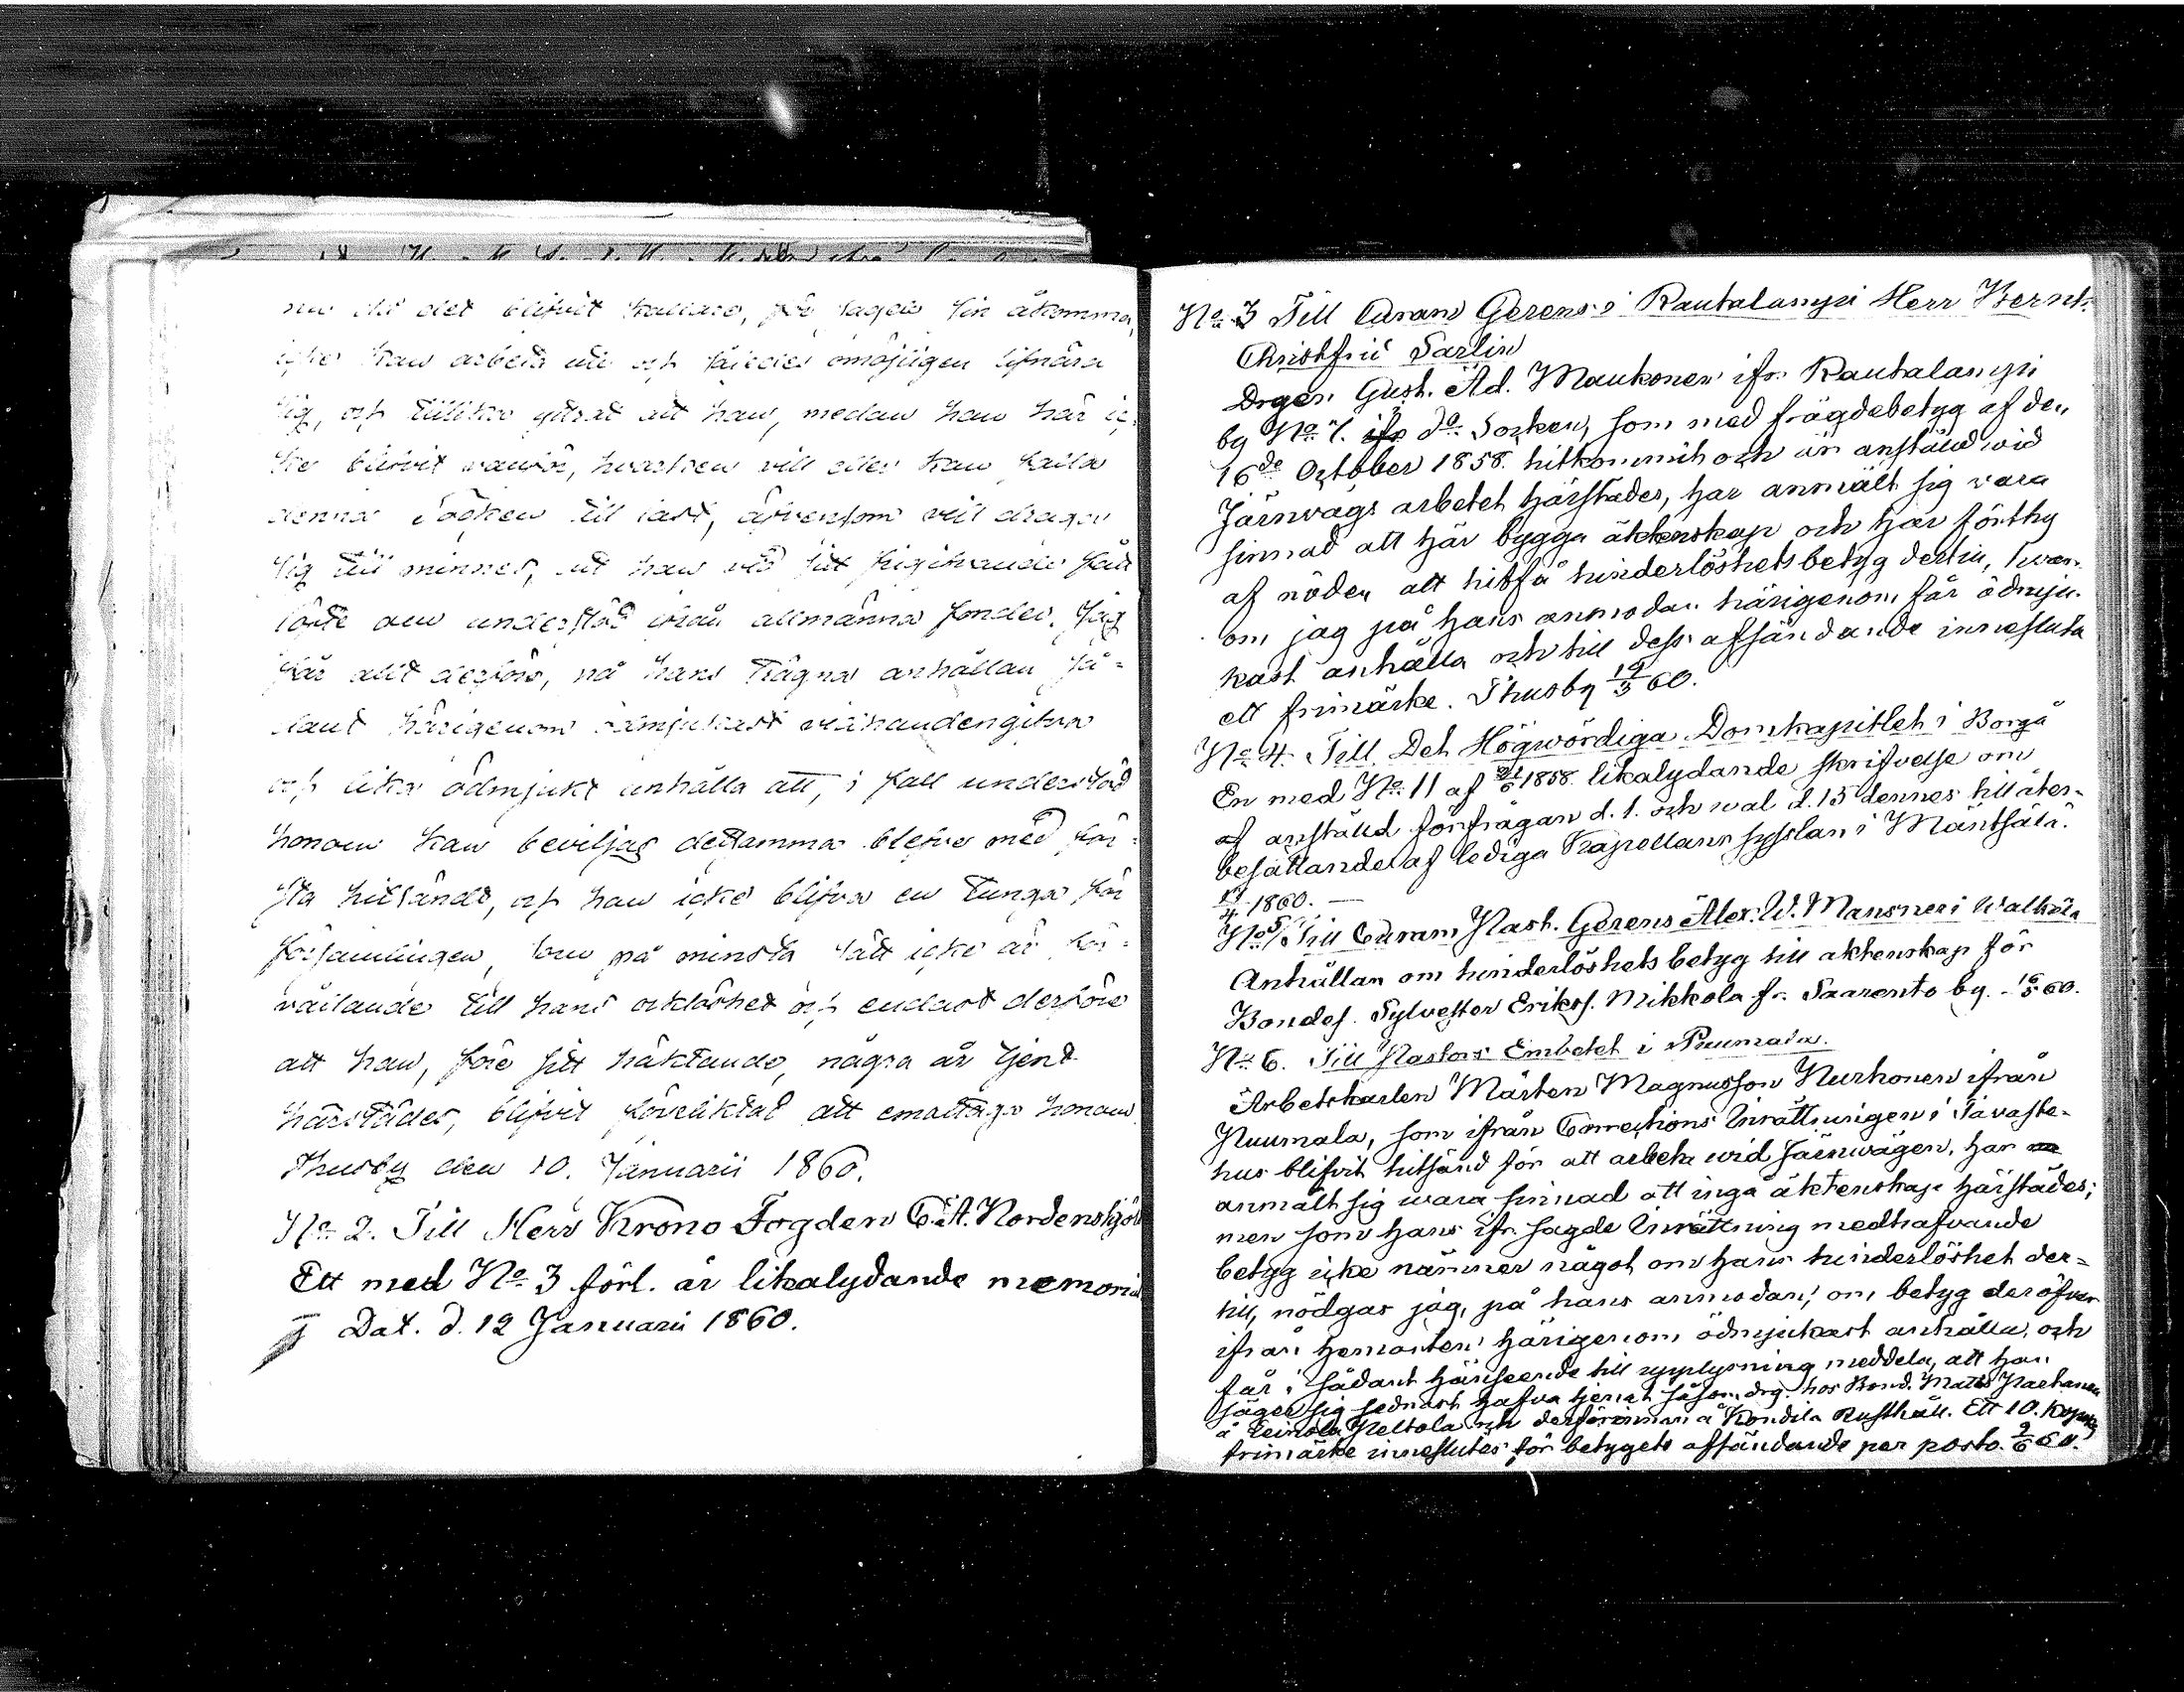 nu då det blifvit kallare, för sagde sin åkomma,
icke kan arbeta ute och således omöjligen lifnära
sig, och tillika yttrat att han, medan han här ic-
ke blifvit vanför, hvarken vill eller kan falla
denna Socken till last, äfvensom vill draga
sig till minnes, att han vid sitt frigifvande fått
löfte om understöd ifrån allmänna fonder. Jag
får alltderföre, på hans trägna anhållan så-
dant härigenom ödmjukast vidhandengifva
och lika ödmjukt anhålla att, i fall understöd
honom kan beviljas detsamma blefve med för-
sta hitsändt, och han icke blifva en tunga för
församlingen, som på minsta sätt icke är för-
vållande till hans ofärdighet och endast derföre
att han, före sitt häktande, några år tjent
härstädes, blifvit förpliktad att emottaga honom.
Thusby den 10. Januarii 1860.
No 2. Till Herr Krono Fogden C. A. Nordenskjöld
Ett med No 3 förl. år likalydande memorial
Dat. d. 12 Januarii 1860.
No 3 Till Curam Gerens i Rautalampi Herr Bernh.
Christfrid Sarlin
Drgen Gust. Ad. Maukonen ifr. Rautalampi
by No 7. do Socken, som med frägdebetyg af den
16de October 1858. hitkommit och är anstäld wid
Järnwägs arbetet härstädes, har anmält sig vara
sinnad att här bygga äktenskap och har förthy
af nöden att hitfå hinderlöshetsbetyg dertill, hwar-
om jag på hans anmodan härigenom får ödmju-
kast anhålla och till dess afsändande innesluta
ett frimärke. Thusby 19/3 60.
No 4. Till Det Högwördiga Domkapitlet i Borgå
En med No 11 af 1858. likalydande skrifvelse om
af anstäld förfrågan d. 1. och wal d. 15 dennes till åter-
besättande af lediga Kapellans sysslan i Mäntsälä.
17/4 1860. —
No 5 Till Curam Past. Gerens Alex. W. Mansner i Walkiala
Anhållan om hinderlöshetsbetyg till äktenskap för
Bondes. Sylvester Eriks. Mikkola fr. Saarento by. - 16/5 60.
No 6. Till Pastors Embetet i Puumala.
Arbetskarlen Mårten Magnusson Hurkonen ifrån
Puumala, som ifrån Corrections Inrättningen i Tavaste-
hus blifvit hitsänd för att arbeta wid Järnwägen, har
anmält sig wara sinnad att ingå äktenskap härstädes;
men som hans ifr. sagde Inrättning medhafvande
betyg icke nämner något om hans hinderlöshet der-
till, nödgas jag, på hans anmodan, om betyg deröfver
ifrån hemorten härigenom ödmjukast anhålla, och
får i sådant hänseende till upplysning meddela, att han
säger sig sednast hafva tjenat såsom drg. hos Bond. Matts
å Peltola och derförinnan å Kondila Rusthåll. Ett 10. Kopeks
frimärke inneslutes för betygets afsändande per posto. 9/6 60.